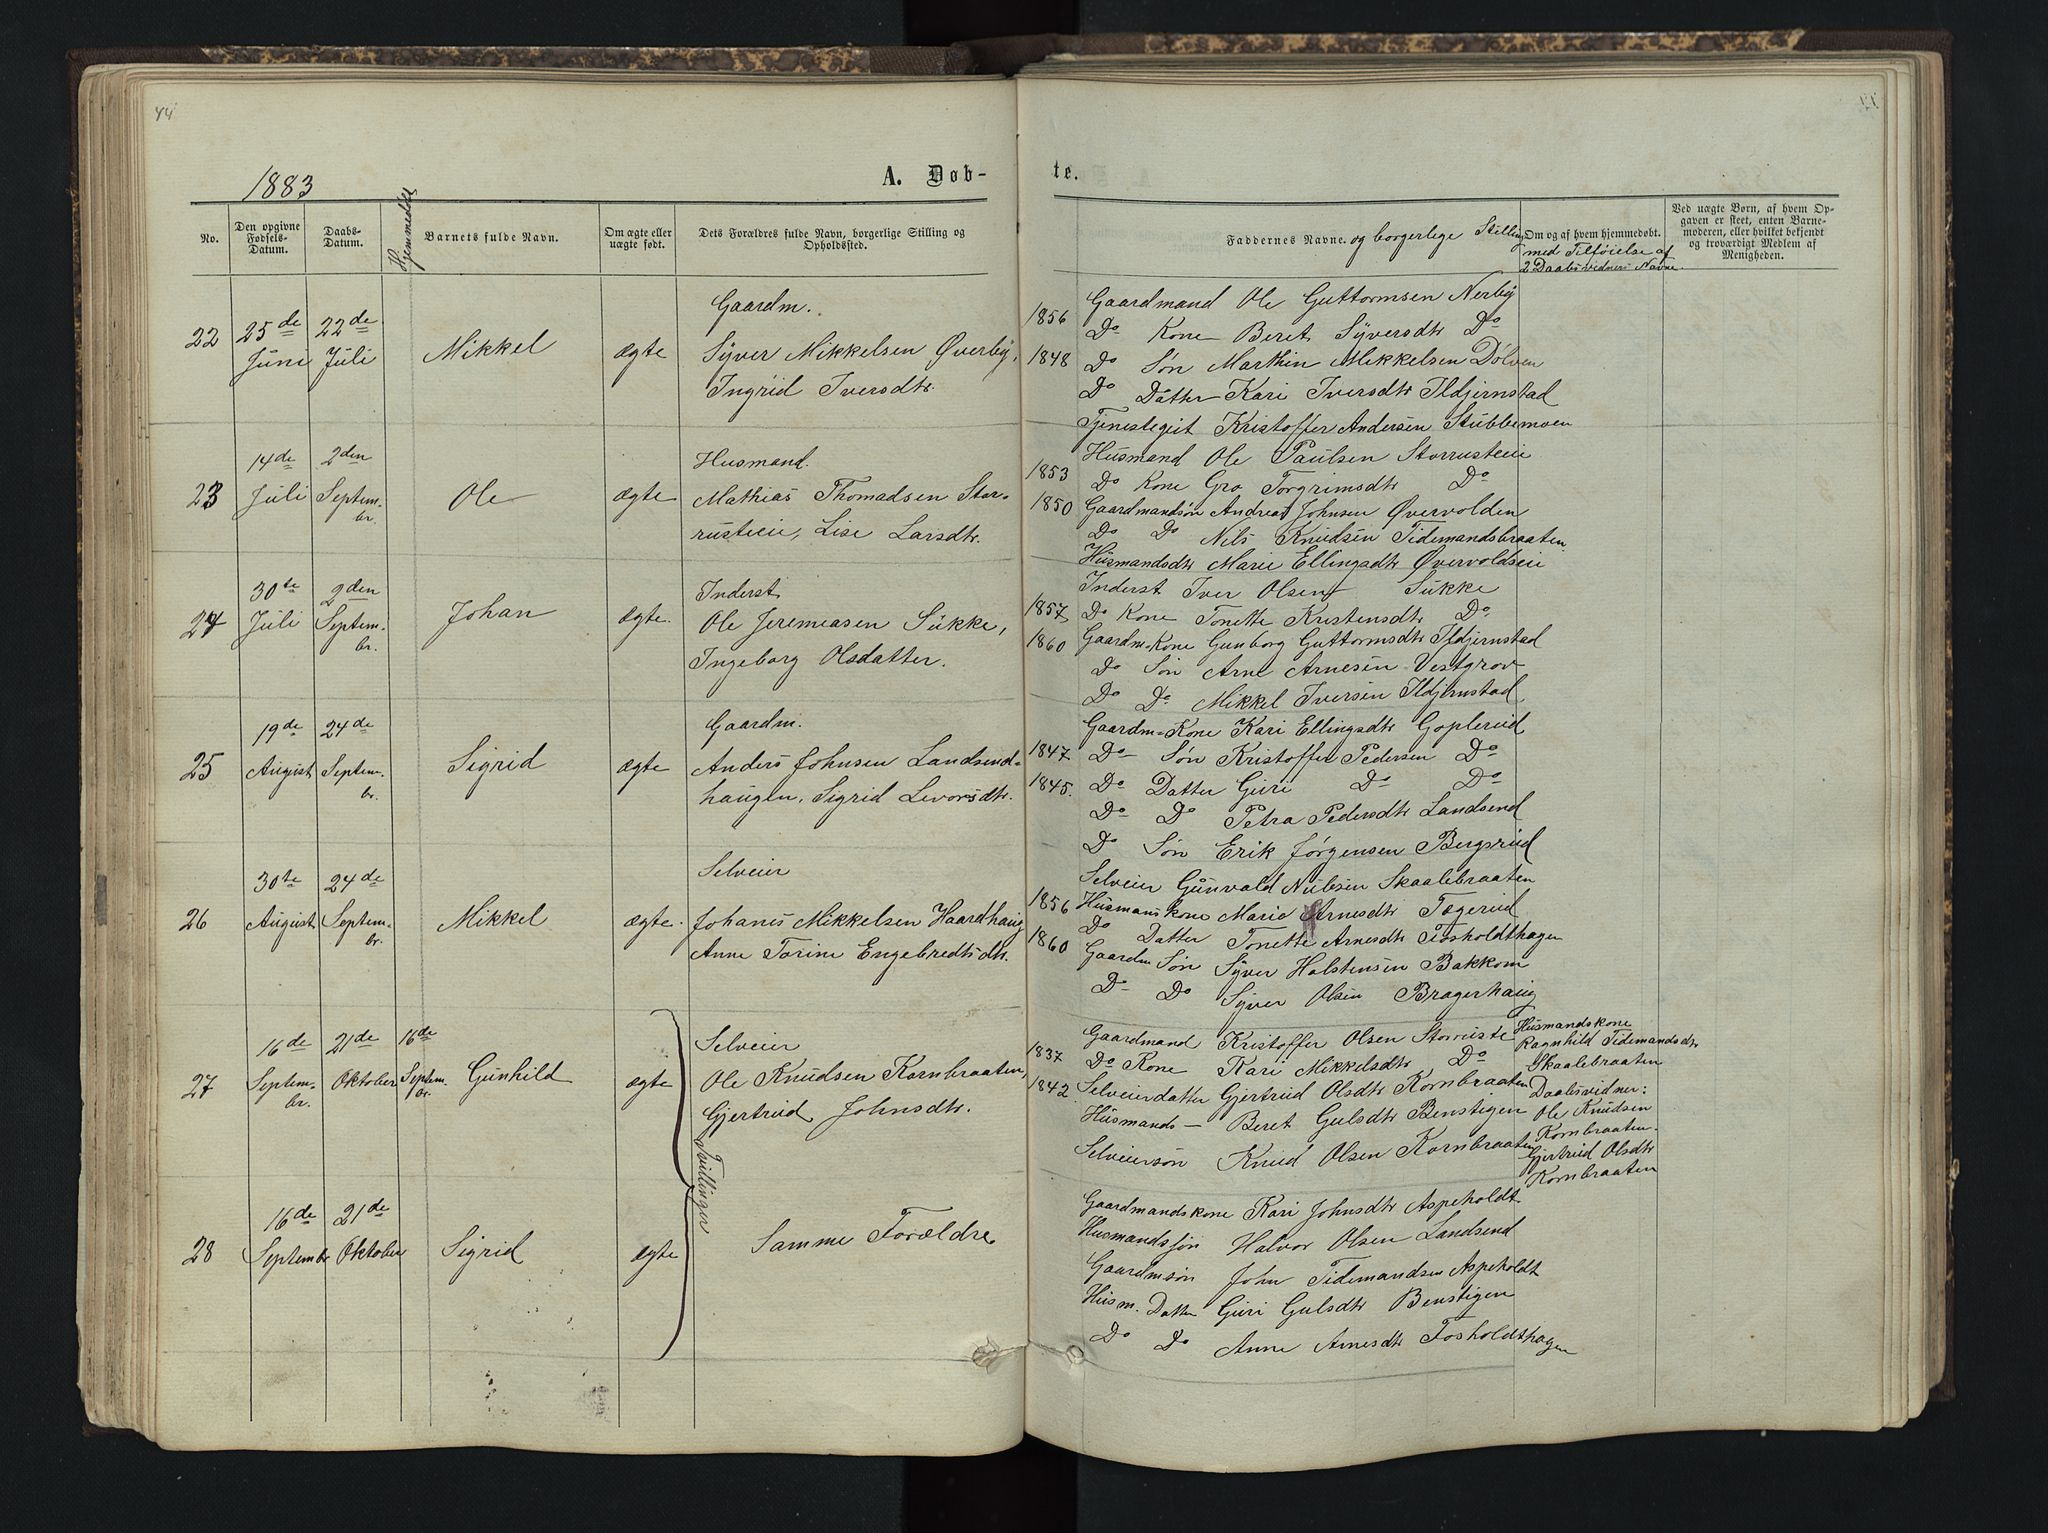 44
1883
A. Døb-
No.
Den opgivne Fødsels-Datum.
Daabs-Datum.
Hjemmedøbt
Barnets fulde Navn.
Om ægte eller uægte født.
Dets Forældres fulde Navn, borgerlige Stilling og Opholdssted.
22
25de Juni
22de Juli
Mikkel
ægte
Gaardm.
Syver Mikkelsen Øverby,
Ingrid Iversdtr.
23
14de Juli
2den Septem-
br.
Ole
ægte
Husmand.
Mathias Thomadsen Stor-
rusteie, Lise Larsdtr.
24
30te Juli
2den Septem-
br.
Johan
ægte.
Inderst
Ole Jeremiasen Sukke,
Ingeborg Olsdatter.
25
19de August
24de Septem-
br.
Sigrid
ægte
Gaardm.
Anders Johnsen Landsend-
haugen, Sigrid Levorsdtr.
26
30te August
24de Septem-
br.
Mikkel
ægte.
Selveier
Johanes Mikkelsen Haardhaug
Anne Torine Engebredtsdtr.
27
16de Septem-
br.
21de Oktober
16de Septem-
br.
Gunhild
ægte
Selveier
Ole Knudsen Kornbraaten,
Gjertrud Johnsdtr.
Tvillinger
28
16de Septembr
21de Oktober
Sigrid
ægte
Samme Forældre
te.
Faddernes Navne. og borgerlige Stilling
Om og af hvem hjemmedøbt.
med Tilføielse af
2 Daabsvidners Navne.
Ved uægte Børn, af hvem Op-
gaven er skeet, enten Barne-
moderen, eller hvilket bekjendt
og troværdigt Medlem af
Menigheden.
1856
1848
Gaardmand Ole Guttormsen Nerby
Do Kone Beret Syversdtr Do
Do Søn Marthin Mikkelsen Dølven
Do Datter Kari Iversdtr Ildjernstad
Tjenestegut Kristoffer Andersen Stubbemoen
1853
1850
Husmand Ole Paulsen Storrusteie
Do Kone Gro Torgrimsdtr Do
Gaardmandsøn Andreas Johnsen Øvervolden
Do Do Nils Knudsen Tidemandsbraaten
Husmandsdtr Marie Ellingsdtr Øvervoldseie
1857
1860
Inderst Iver Olsen Sukke
Do Kone Tonette Kristensdtr Do
Gaardm-Kone Gunborg Guttormsdtr Ildjernstad
Do Søn Arne Arnesen Vestgrov
Do Do Mikkel Iversen Ildjernstad
1847
1845.
Gaardm-Kone Kari Ellingsdtr Goplerud
Do Søn Kristoffer Pedersen Do
Do Datter Guri Do Do
Do Do Petra Pedersdtr Landsend
Do Søn Erik Jørgensen Bergsrud
1856
1860
Selveier Gunvald Nilsen Skaalebraaten
Husmanskone Marie Arnesdtr Tøgerud
Do Datter Tonette Arnesdtr Fosholdthagen
Gaardm Søn Syver Holstensen Bakkom
Do Do Syver Olsen Bragerhaug
1837
1842
Gaardmand Kristoffer Olsen Storruste
Do Kone Kari Mikkelsdtr Do
Selveierdatter Gjertrud Olsdtr Kornbraaten
Husmands — Beret Gulsdtr Benstigen
Selveiersøn Knud Olsen Kornbraaten
Husmandskone
Ragnhild Tidemandsdtr
Skaalebraaten
Daabsvidner:
Ole Knudsen
Kornbraaten.
Gjertrud Olsdtr
Kornbraaten
Gaardmandskone Kari Johnsdtr Aspeholdt
Husmandssøn Halvor Olsen Landsend
Gaardmsøn John Tidemandsen Aspeholdt
Husm. Datter Guri Gulsdtr Benstigen
Do Do Anne Arnesdtr Fosholdthagen